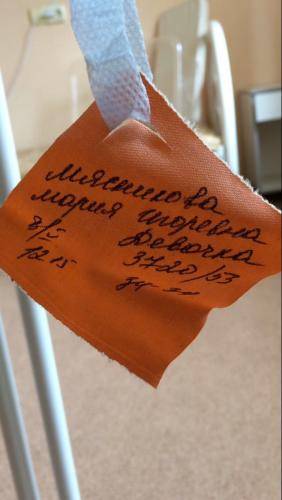 Мясникова
Мария Игоревна
8/X Девочка
12 15 3720/53